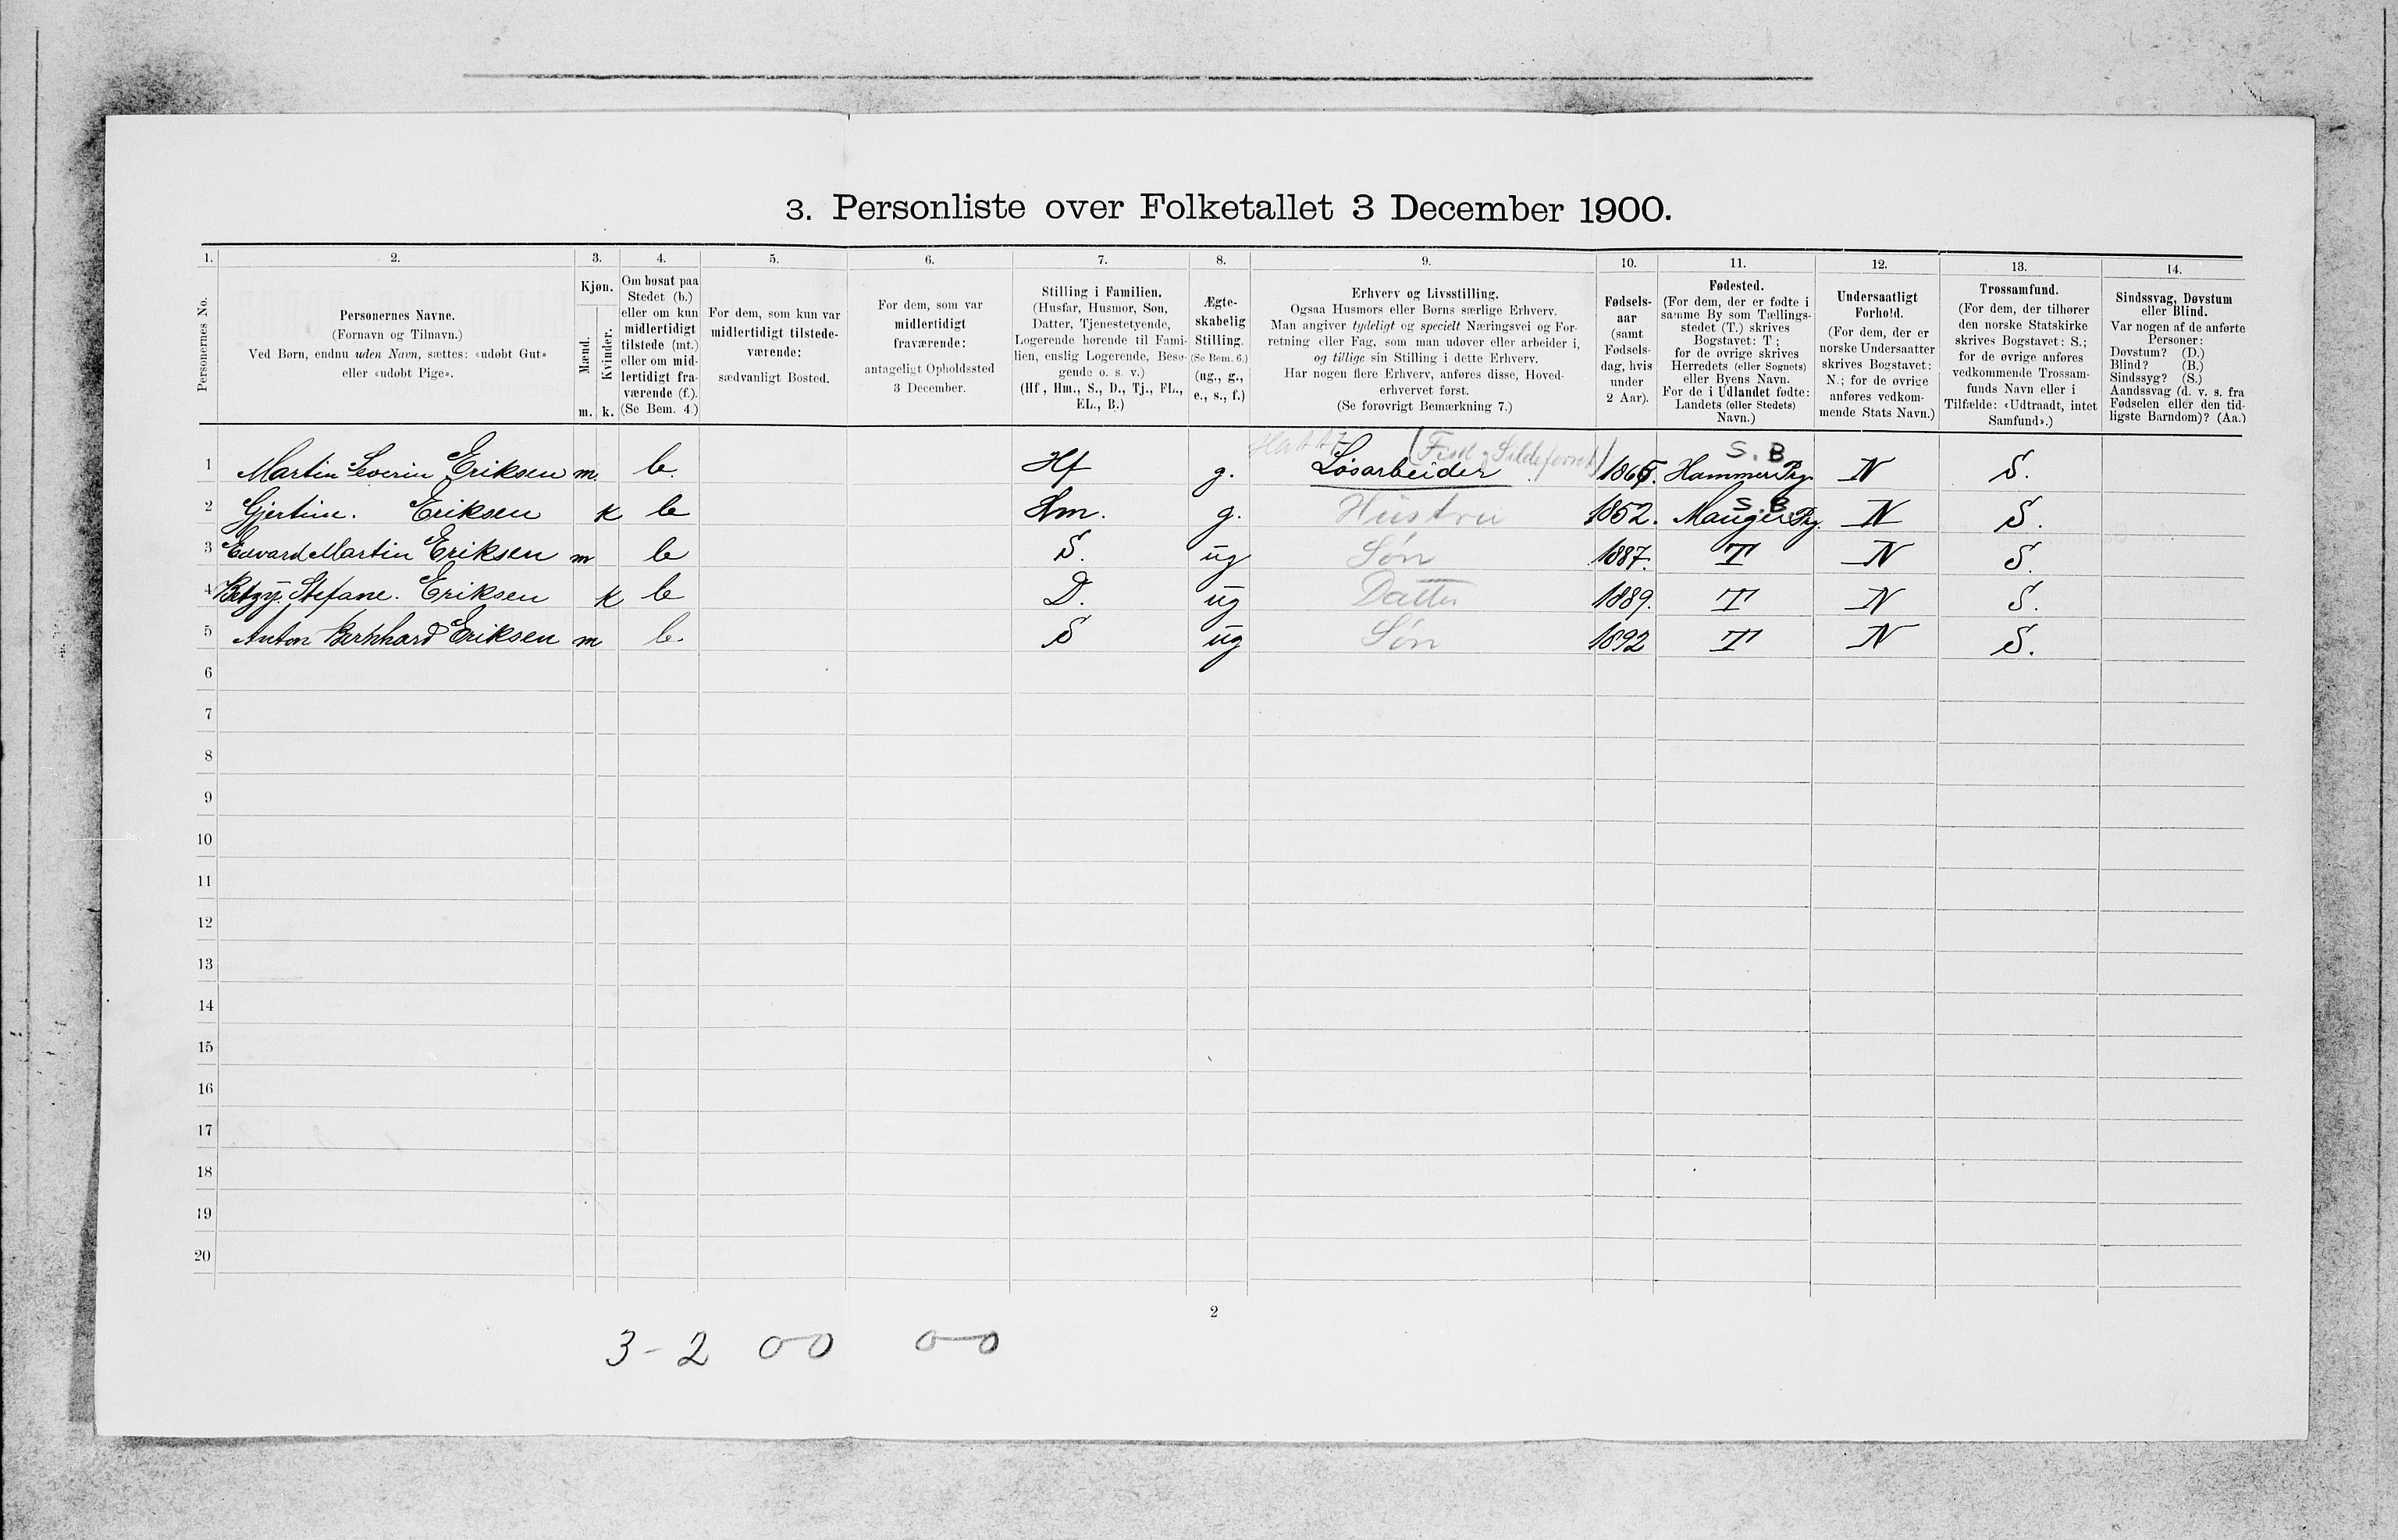 3. Personliste over Folketallet 3 December 1900.
1. 2. 3. 4. 5. 6. 7. 8. 9. 10. 11. 12. 13. 14.
Personernes No.
Personernes Navne.
(Fornavn og Tilnavn.)
Ved Børn, endnu uden Navn, sættes: «udøbt Gut»
eller «udøbt Pige».
Kjøn.
Mænd.
Kvinder.
m. k.
Om bosat paa
Stedet (b.)
eller om kun
midlertidigt
tilstede (mt.)
eller om mid-
lertidigt fra-
værende (f.).
(Se Bem. 4.)
For dem, som kun var
midlertidigt tilstede-
værende:
sædvanligt Bosted.
For dem, som var
midlertidigt
fraværende:
antageligt Opholdssted
3 December.
Stilling i Familien.
(Husfar, Husmor, Søn,
Datter, Tjenestetyende,
Logerende hørende til Fami-
lien, enslig Logerende, Besø-
gende o. s. v.)
(Hf., Hm., S., D., Tj., FL.,
EL., B.)
Ægte-
skabelig
Stilling.
(Se Bem. 6.)
(ug., g.,
e., s., f.)
Erhverv og Livsstilling.
Ogsaa Husmors eller Børns særlige Erhverv.
Man angiver tydeligt og specielt Næringsvei og For-
retning eller Fag, som man udøver eller arbeider i,
og tillige sin Stilling i dette Erhverv.
Har nogen flere Erhverv, anføres disse, Hoved-
erhvervet først.
(Se forøvrigt Bemærkning 7.)
Fødsels-
aar
(samt
Fødsels-
dag, hvis
under
2 Aar).
Fødested.
(For dem, der er fødte i
samme By som Tællings-
stedet (T.) skrives
Bogstavet: T;
for de øvrige skrives
Herredets (eller Sognets)
eller Byens Navn.
For de i Udlandet fødte:
Landets (eller Stedets)
Navn.)
Undersaatligt
Forhold.
(For dem, der er
norske Undersaatter
skrives Bogstavet:
N.; for de øvrige
anføres vedkom-
mende Stats Navn.)
Trossamfund.
(For dem, der tilhører
den norske Statskirke
skrives Bogstavet: S.;
for de øvrige anføres
vedkommende Trossam-
funds Navn eller i
Tilfælde: «Udtraadt, intet
Samfund».)
Sindssvag, Døvstum
eller Blind.
Var nogen af de anførte
Personer:
Døvstum? (D.)
Blind? (B.)
Sindssyg? (S.)
Aandssvag (d. v. s. fra
Fødselen eller den tid-
ligste Barndom)? (Aa.)
(Fisk og Sildeforret) S. B
1 Martin Severin Eriksen m. b. Hf g. Løsarbeider 1865. Hammer Pg. N S.
S. B.
2 Gjertine. Eriksen k b Hm. g. Hustru 1852. Manger Pg. N S.
3 Edvard Martin Eriksen m b S. ug Søn 1887. T N S.
4 Betzy. Stefane. Eriksen k b D. ug Datter 1889. T N S.
5 Anton Bernhard Eriksen m b. S ug Søn 1892 T N S.
6
7
8
9
10
11
12
13
14
15
16
17
18
19
20
2
3-2 00 0-0